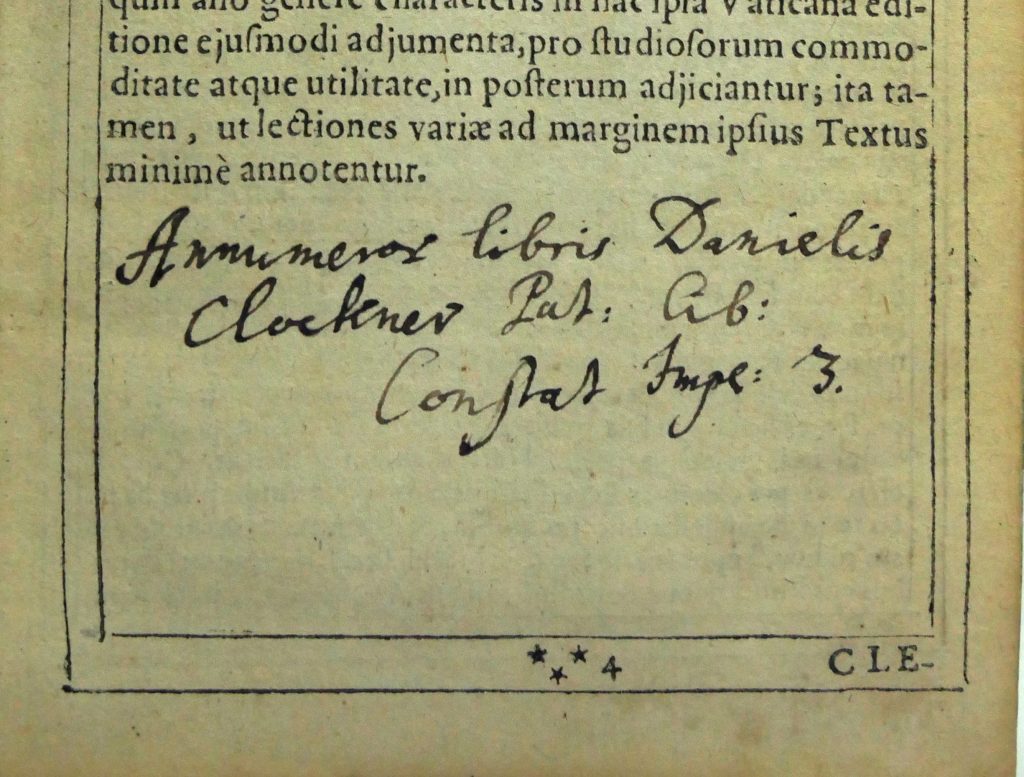 quin alio genere characteris in hac ipsa Vaticana edi-
tione ejuſmodi adjumenta, pro ſtudioſorum commo-
ditate atque utilitate, in poſterum adjiciantur; ita ta-
men, ut lectiones variæ ad marginem ipſius Textus
minimè annotentur.
Annumeror libris Danielis
Clockner Pat: Cib:
Conſtat Impe: 3.
*** 4
CLE-